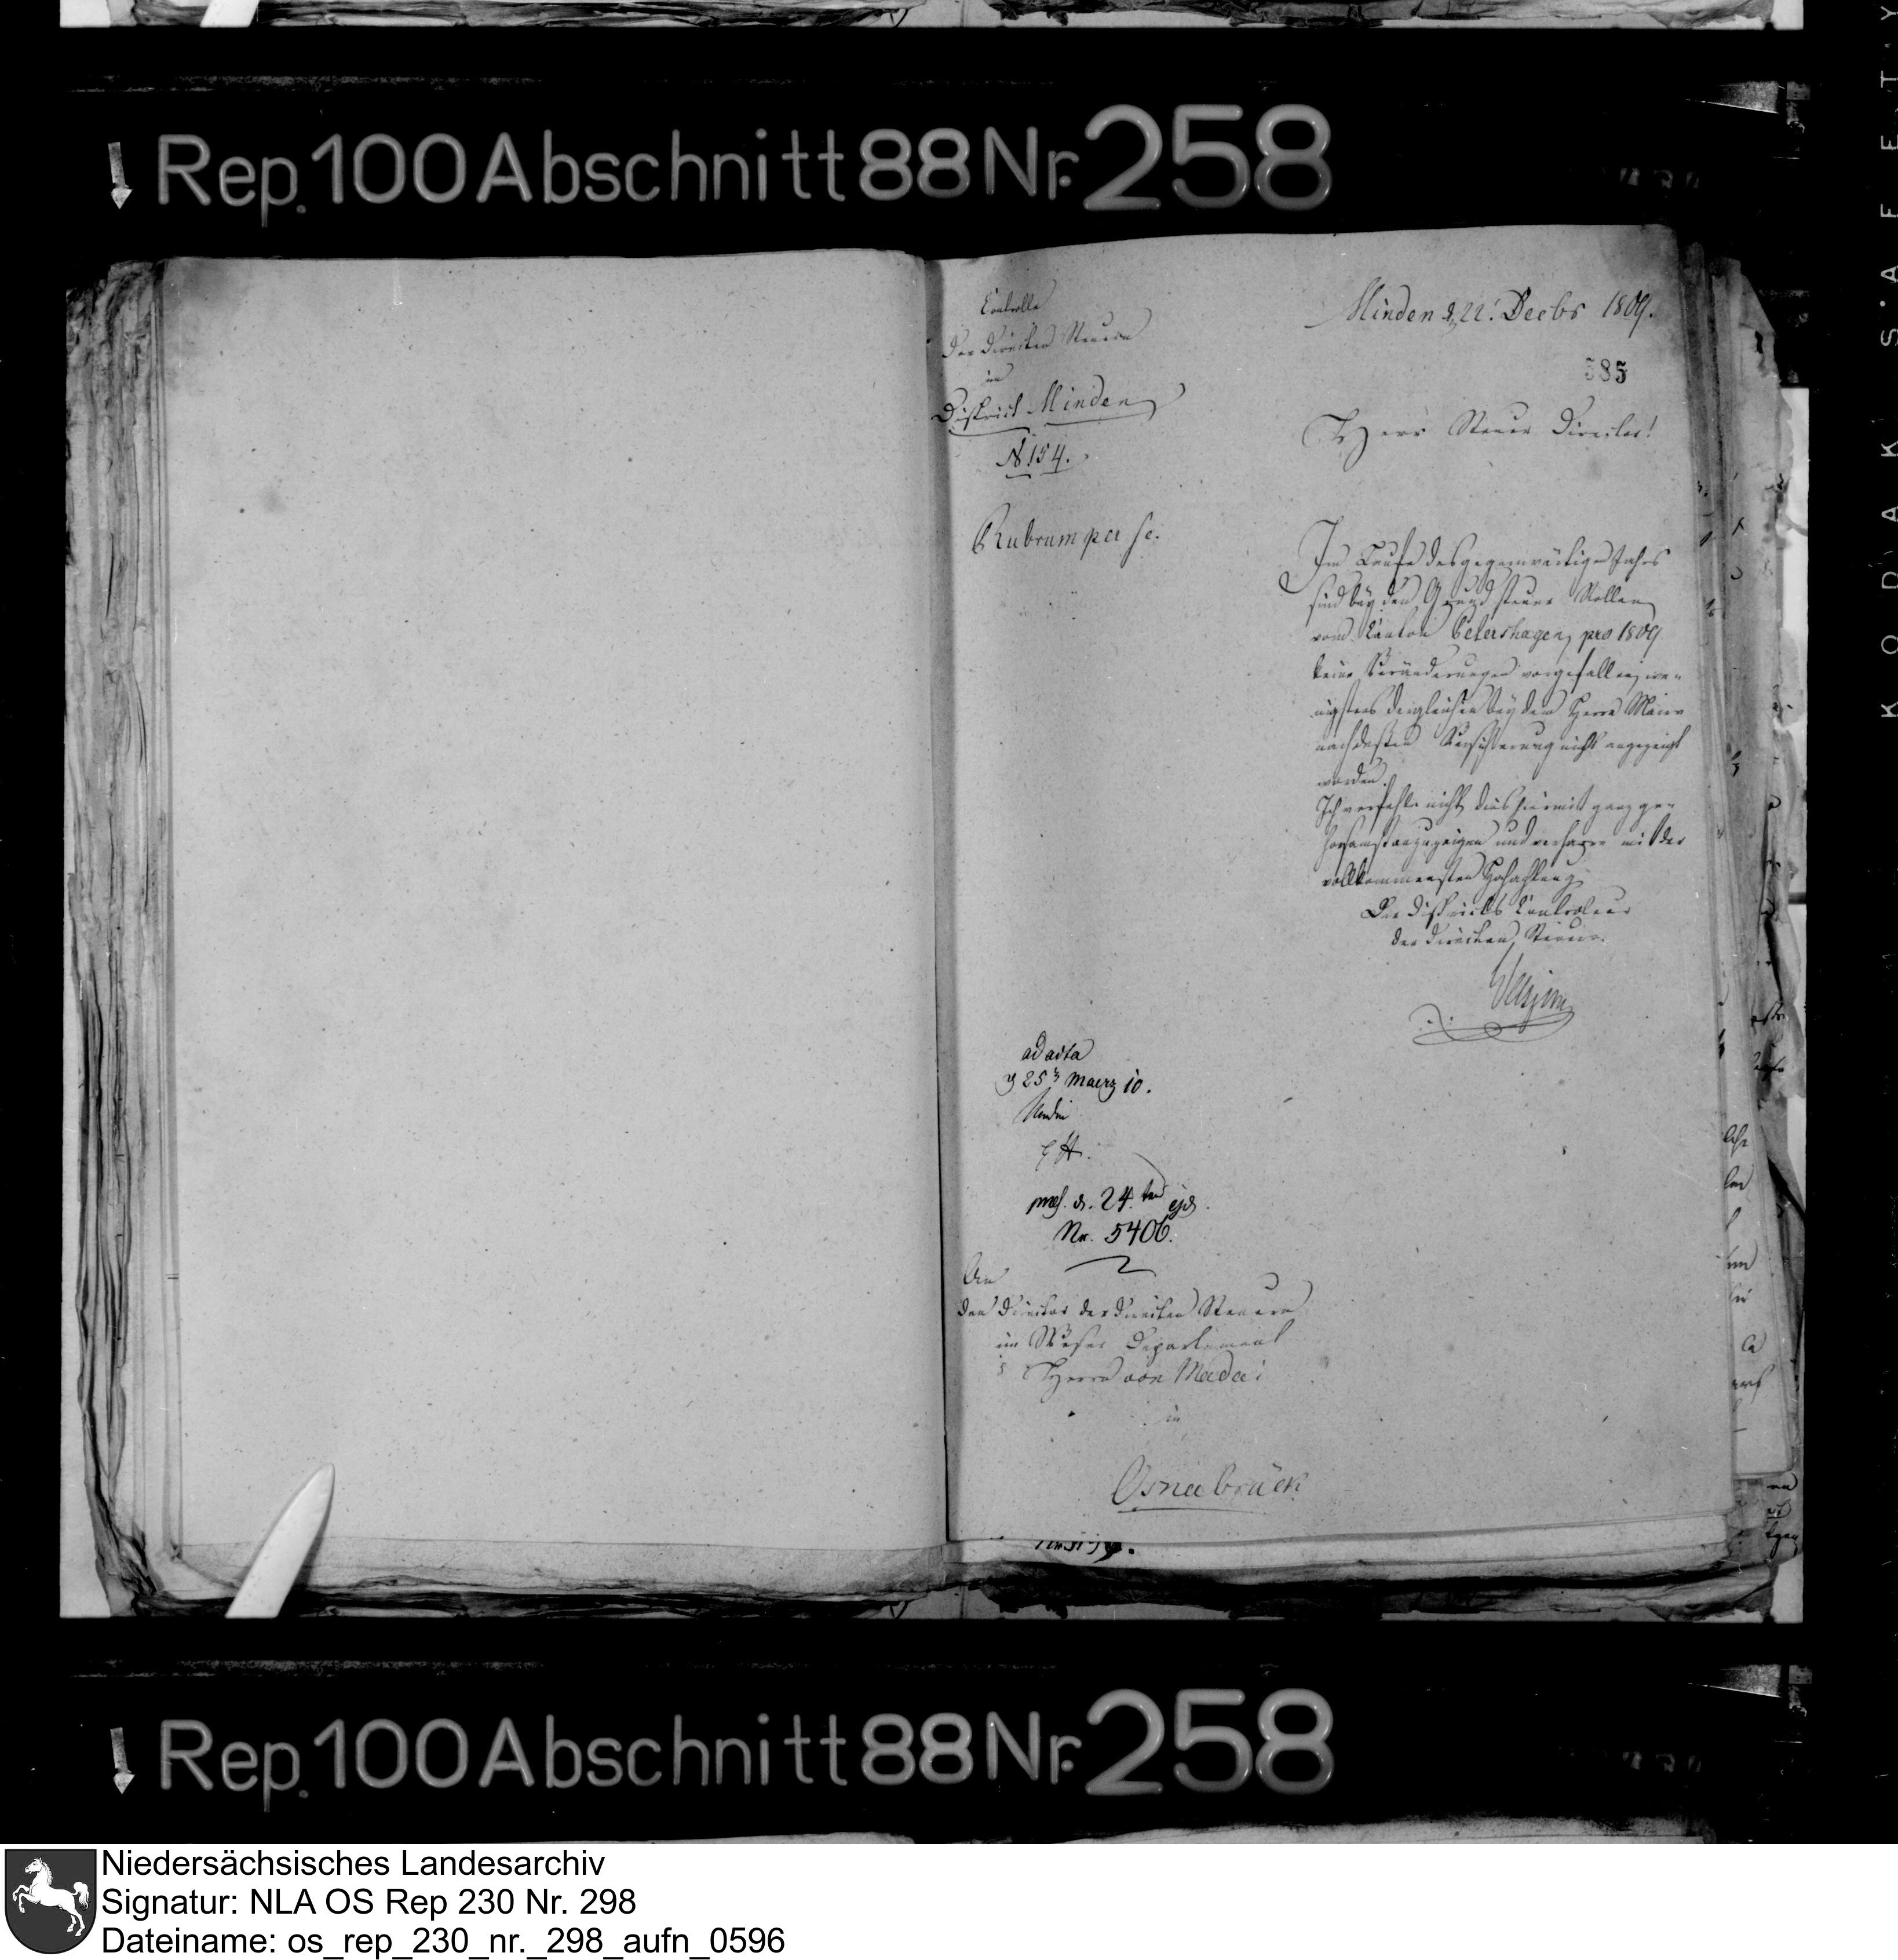 Rep. 100 Abschnitt 88 Nr. 258
Controlle
der directen Steuern
im
District Minden
N. 154.
Rubrum per se.
Minden d. 22. Decbr 1809.
585
Herr Steuer Director!
Im Laufe des gegenwärtigen Jahrs
sind bey den Grundsteuer Rollen
vom Canton Petershagen pro 1809
keine Veränderungen vorgefallen, we-
nigstens dergleichen bey dem Herrn Maire
nach dessen Versicherung nicht angezeigt
worden.
Ich verfehle nicht dies hiermit ganz ge-
horsamst anzuzeigen und verharre mit der
vollkommensten Hochachtung
Der Districts Controleur
der directen Steuern.
ad acta
d 25 Maerz 10.
praes. d. 24.ten ejd.
Nr. 5406.
An
den Director der directen Steuern
im Weser Departement
Herrn von Madai
in
Osnabrück
Rep. 100 Abschnitt 88 Nr. 258
KODAK SAFETY
Niedersächsisches Landesarchiv
Signatur: NLA OS Rep 230 Nr. 298
Dateiname: os_rep_230_nr._298_aufn_0596